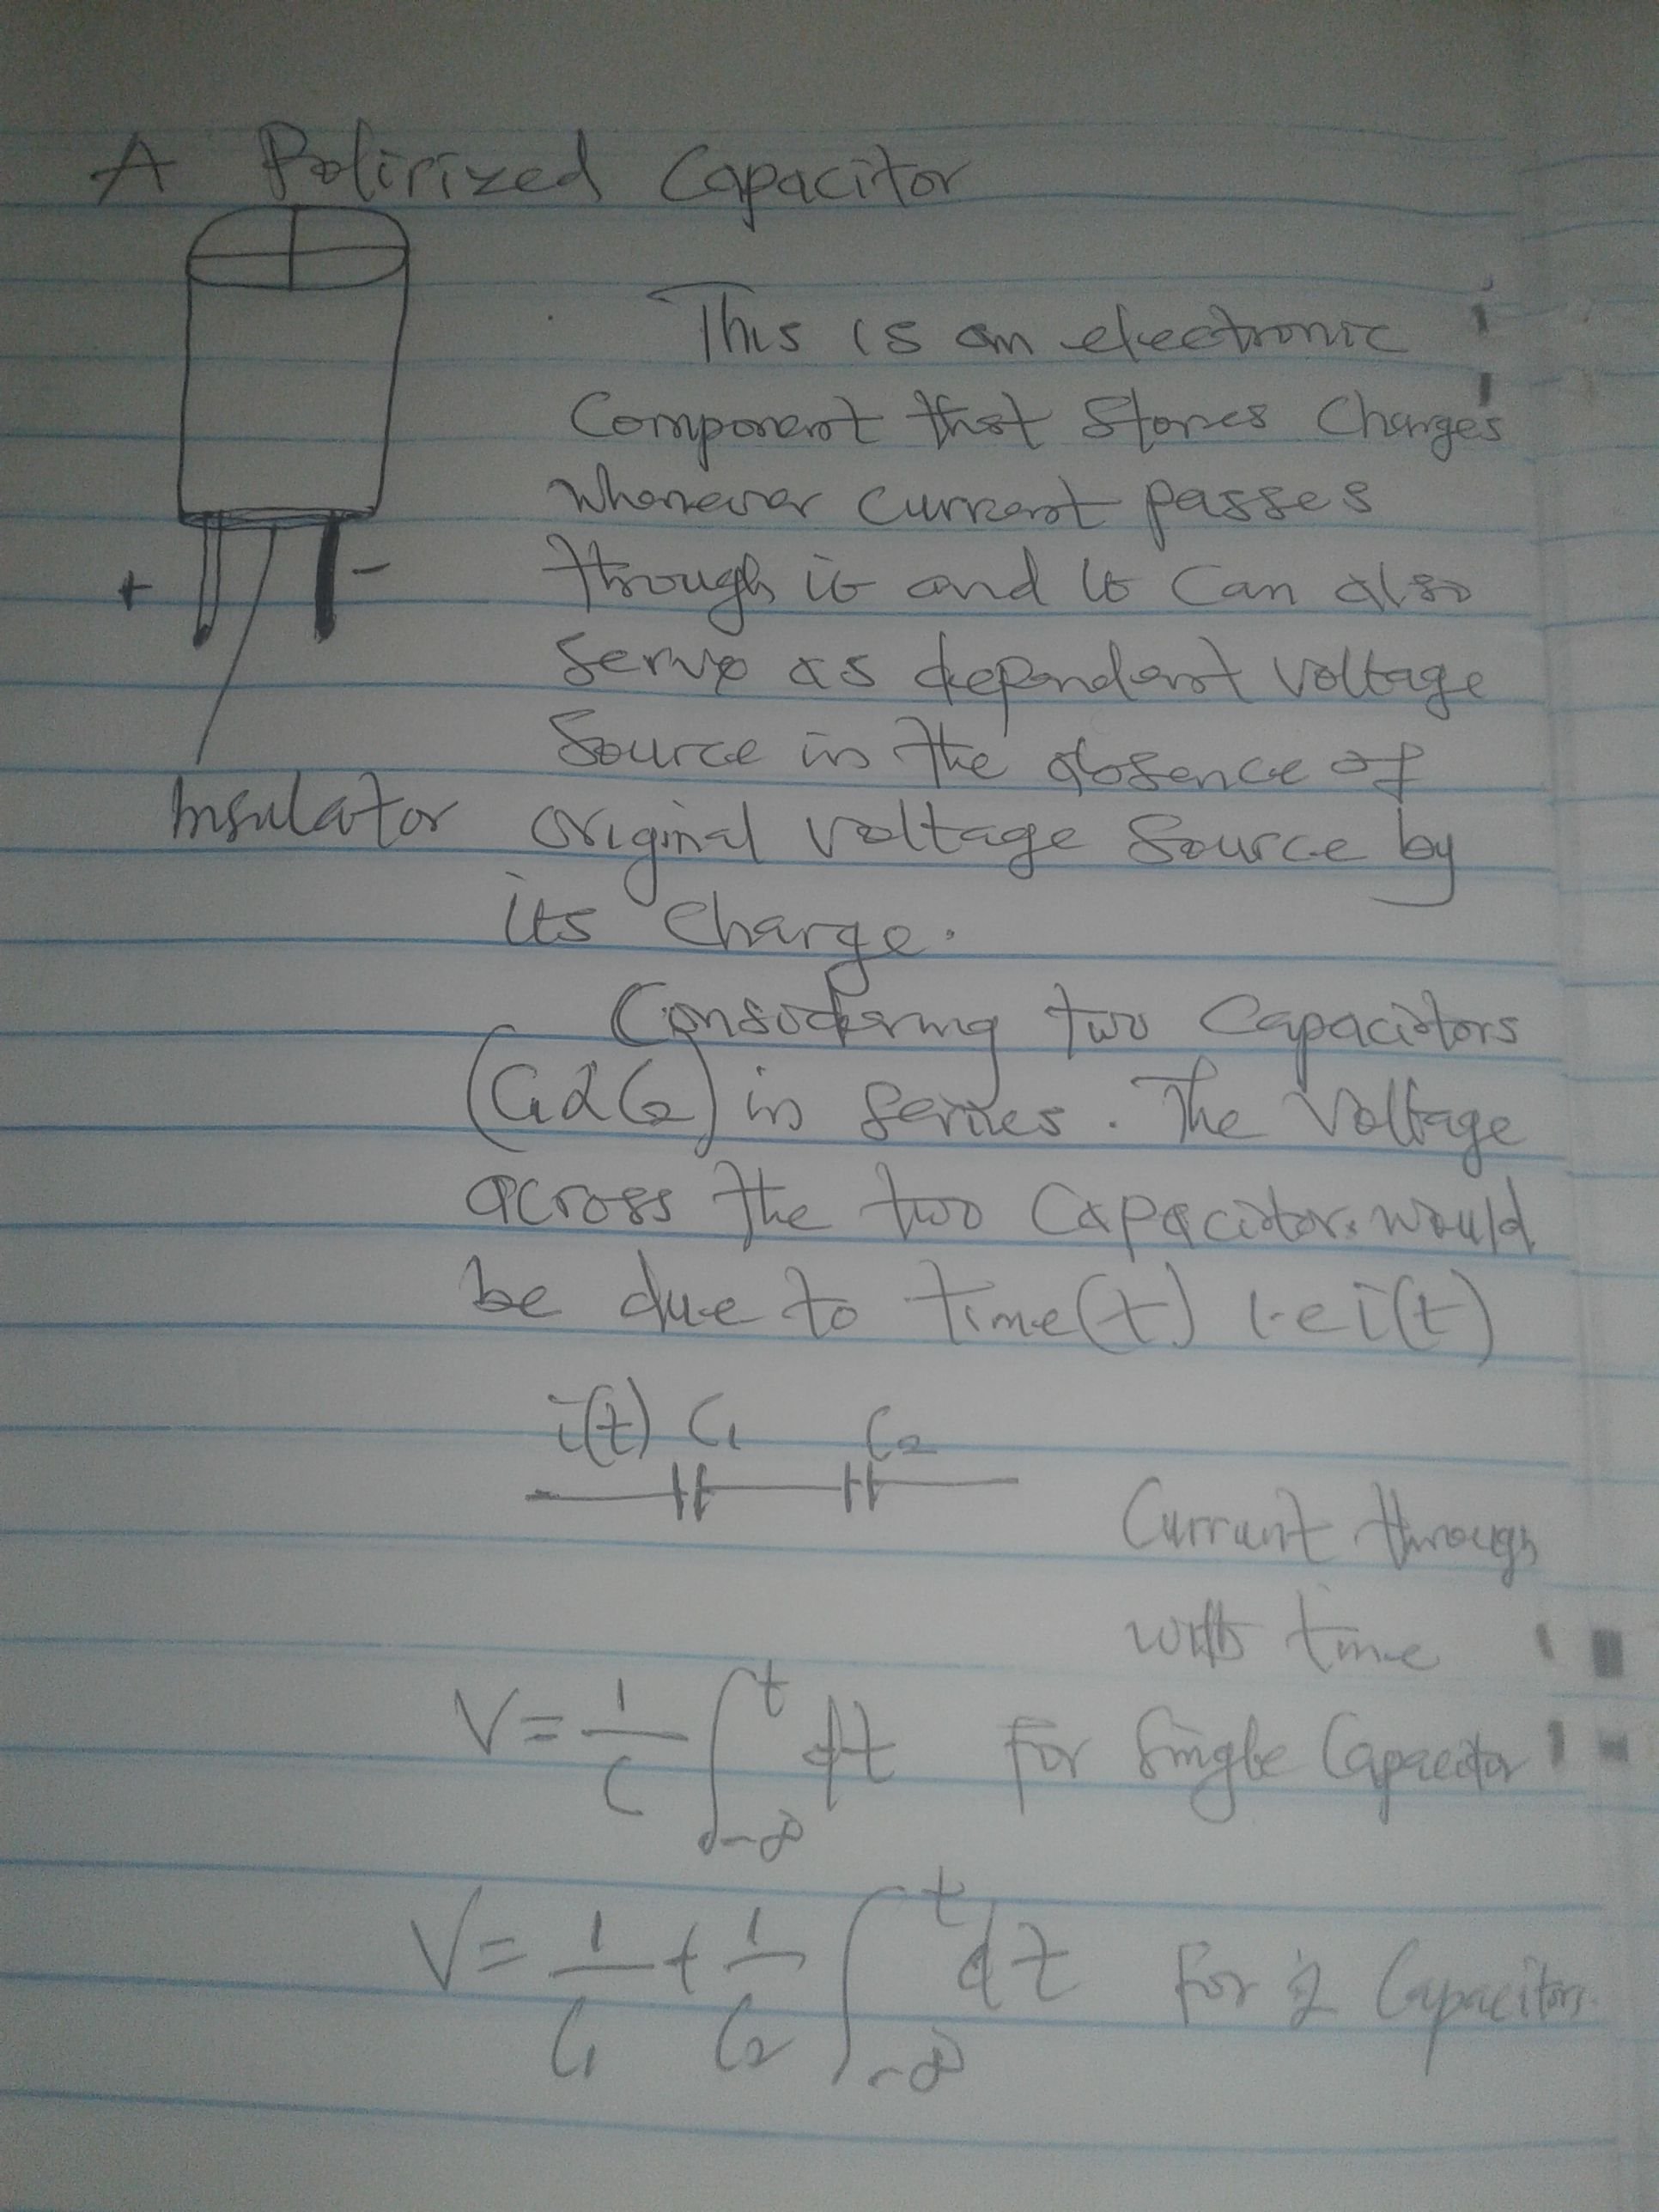 A Polirized Capacitor
This is an electronic
Component that Stores Charges
Whenever current passes
through it and it can also
+ -
Serve as dependent voltage
Source in the absence of
Insulator
original voltage Source by
its charge.
Considering two Capacitors
(C1 & C2) in series. The Voltage
across the two Capacitors would
be due to time(t) i.e i(t)
i(t) C1 C2
Current through
with time
V = 1/C ∫_{-∞}^{t} dt For Single Capacitor
V = 1/C1 + 1/C2 ∫_{-∞}^{t} dt For 2 Capacitors.